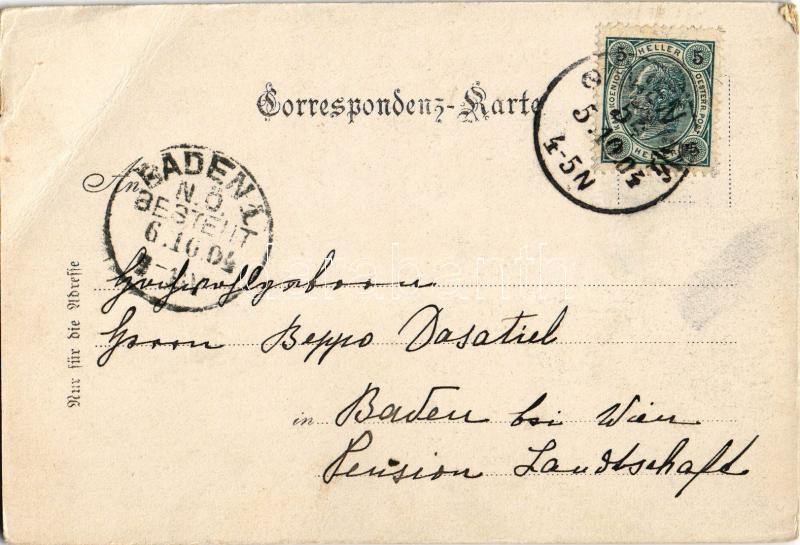 Correspondenz-Karte
5 HELLER 5
5 HELLER 5
5.10.04
4-5N
An
BADEN 1
N.Ö.
BESTELLT
6.10.04
Nur für die Adresse
Hochwohlgeboren
Herrn Beppo Dasatiel
in Baden bei Wien
Pension Landtschaft
darabanth